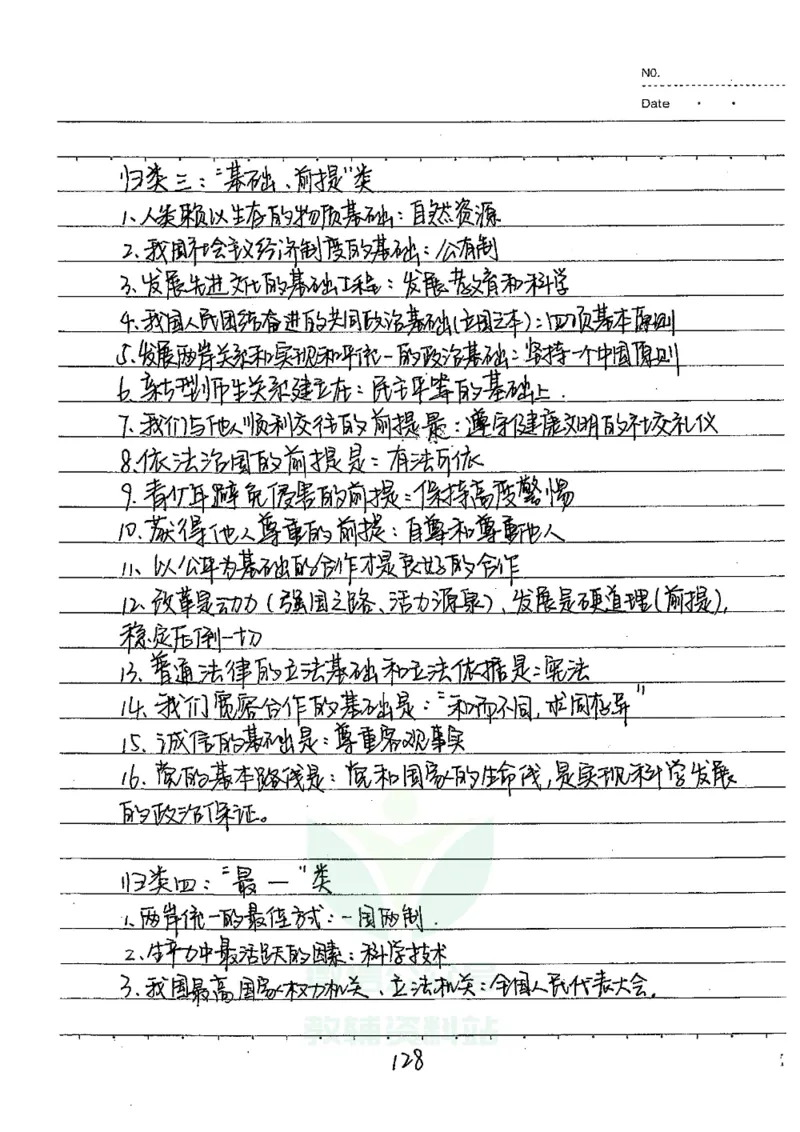 NO.
Date
归类三：“基础、前提”类
1、人类赖以生存的物质基础：自然资源
2、我国社会主义经济制度的基础：公有制
3、发展先进文化的基础工程：发展教育和科学
4、我国人民团结奋进的共同政治基础(立国之本)：四项基本原则
5、发展两岸关系和实现和平统一的政治基础：坚持一个中国原则
6、新型师生关系建立在：民主平等的基础上.
7、我们与他人顺利交往的前提是：遵守健康文明的社交礼仪
8、依法治国的前提是：有法可依
9、青少年避免侵害的前提：保持高度警惕
10、获得他人尊重的前提：自尊和尊重他人
11、以公平为基础的合作才是良好的合作
12、改革是动力（强国之路、活力源泉）、发展是硬道理(前提)，
稳定压倒一切
13、普通法律的立法基础和立法依据是：宪法
14、我们宽容合作的基础是：“和而不同，求同存异”
15、诚信的基础是：尊重客观事实
16、党的基本路线是：党和国家的生命线，是实现科学发展
的政治保证。
归类四：“最一”类
1、两岸统一的最佳方式：一国两制.
2、生产力中最活跃的因素：科学技术
3、我国最高国家权力机关、立法机关：全国人民代表大会.
教辅资料站
128